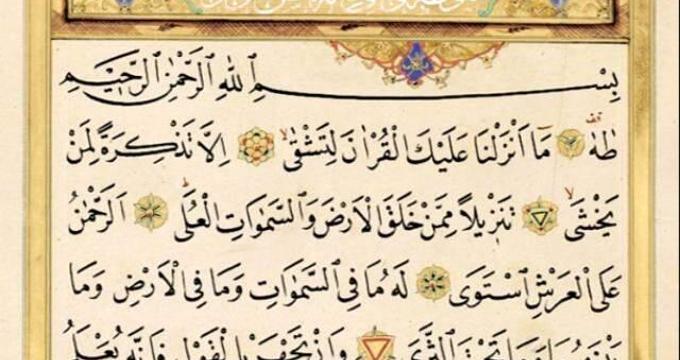 بِسْمِ اللهِ الرَّحْمٰنِ الرَّحِيمِ
طٰهٰ مَا اَنْزَلْنَا عَلَيْكَ الْقُرْاٰنَ لِتَشْقٰى اِلَّا تَذْكِرَةً لِمَنْ
يَخْشٰى تَنْزِيلًا مِمَّنْ خَلَقَ الْاَرْضَ وَالسَّمٰوَاتِ الْعُلٰى اَلرَّحْمٰنُ
عَلَى الْعَرْشِ اسْتَوٰى لَهُ مَا فِى السَّمٰوَاتِ وَمَا فِى الْاَرْضِ وَمَا
بَيْنَهُمَا وَمَا تَحْتَ الثَّرٰى وَاِنْ تَجْهَرْ بِالْقَوْلِ فَاِنَّهُ يَعْلَمُ